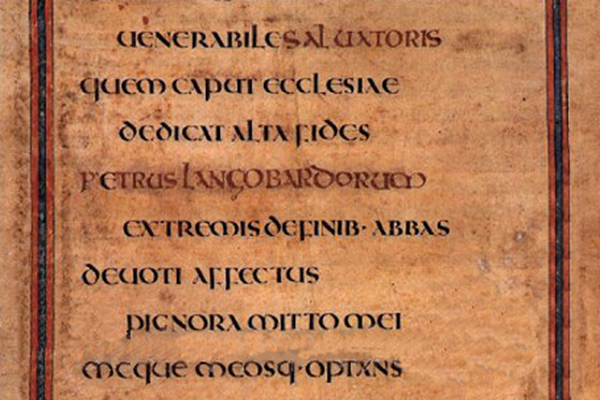 UENERABILE SALUATORIS
QUEM CAPUT ECCLESIAE
DEDICAT ALTA FIDES
PETRUS LANGOBARDORUM
EXTREMIS DE FINIB· ABBAS
DEUOTI AFFECTUS
PIGNORA MITTO MEI
MEQUE MEOSQ· OPTANS